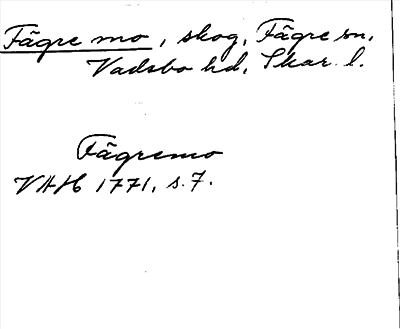 Fägre mo, skog, Fägre sn,
Vadsbo hd, Skar. l.
Fägremo
VAH 1771, s. 7.